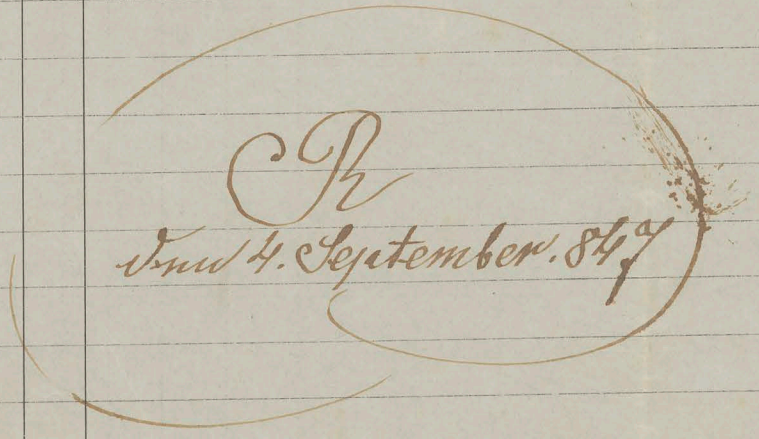 R
den 4. September. 847